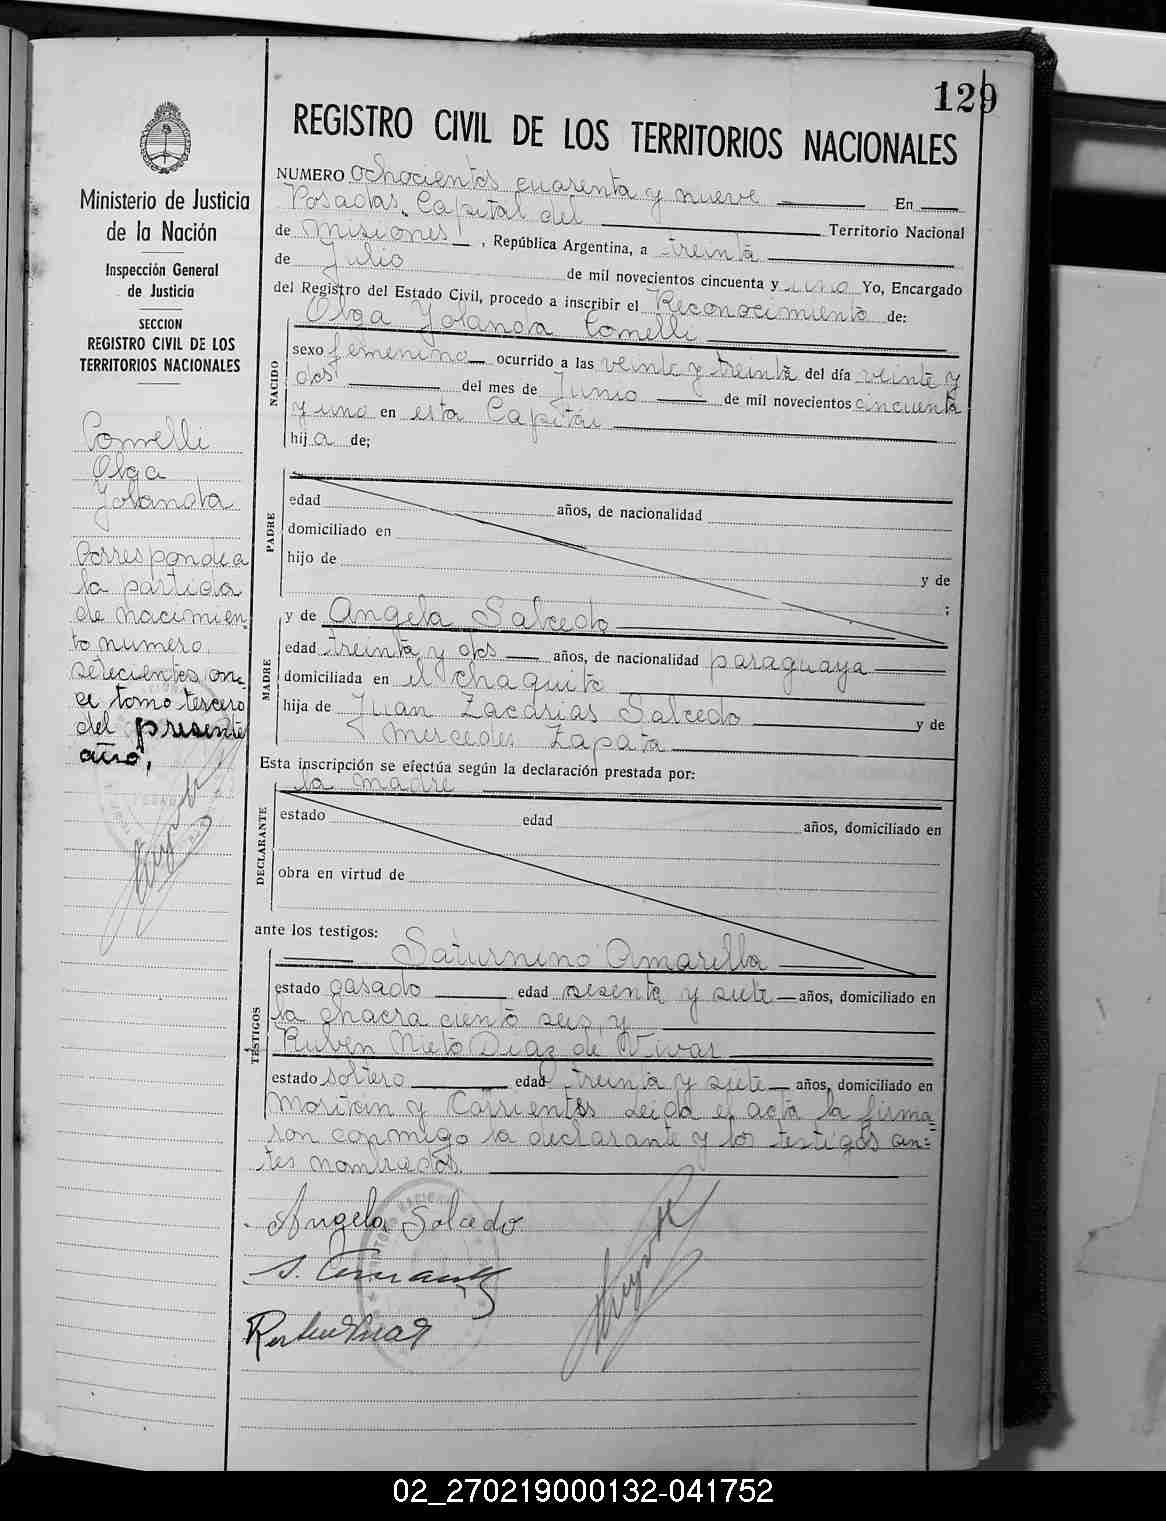 129
REGISTRO CIVIL DE LOS TERRITORIOS NACIONALES
Ministerio de Justicia
de la Nación
Inspección General
de Justicia
SECCION
REGISTRO CIVIL DE LOS
TERRITORIOS NACIONALES
Comelli
Olga
Yolanda
Corresponde a
la partida
de nacimien
to numero
setecientos on
ce tomo tercero
del presente
año,
NUMERO ochocientos cuarenta y nueve En
Posadas, Capital del Territorio Nacional
de Misiones, República Argentina, a treinta
de Julio de mil novecientos cincuenta y uno Yo, Encargado
del Registro del Estado Civil, procedo a inscribir el Reconocimiento de:
Olga Yolanda Comelli
NACIDO
sexo femenino ocurrido a las veinte y treinta del día veinte y
dos del mes de Junio de mil novecientos cincuenta
y uno en esta Capital
hija de;
PADRE
edad años, de nacionalidad
domiciliado en
hijo de y de
;
MADRE
y de Angela Salcedo
edad treinta y dos años, de nacionalidad paraguaya
domiciliada en el chaquito
hija de Juan Zacarias Salcedo y de
Mercedes Zapata
Esta inscripción se efectúa según la declaración prestada por:
la madre
DECLARANTE
estado edad años, domiciliado en
obra en virtud de
ante los testigos:
TESTIGOS
Saturnino Amarilla
estado casado edad sesenta y siete años, domiciliado en
la chacra ciento seis y
Ruben Nieto Diaz de Vivar
estado soltero edad treinta y siete años, domiciliado en
Moritan y Corrientes Leida el acta la firma
ron conmigo la declarante y los testigos an=
tes nombrados.
Angela Salcedo
02_270219000132-041752